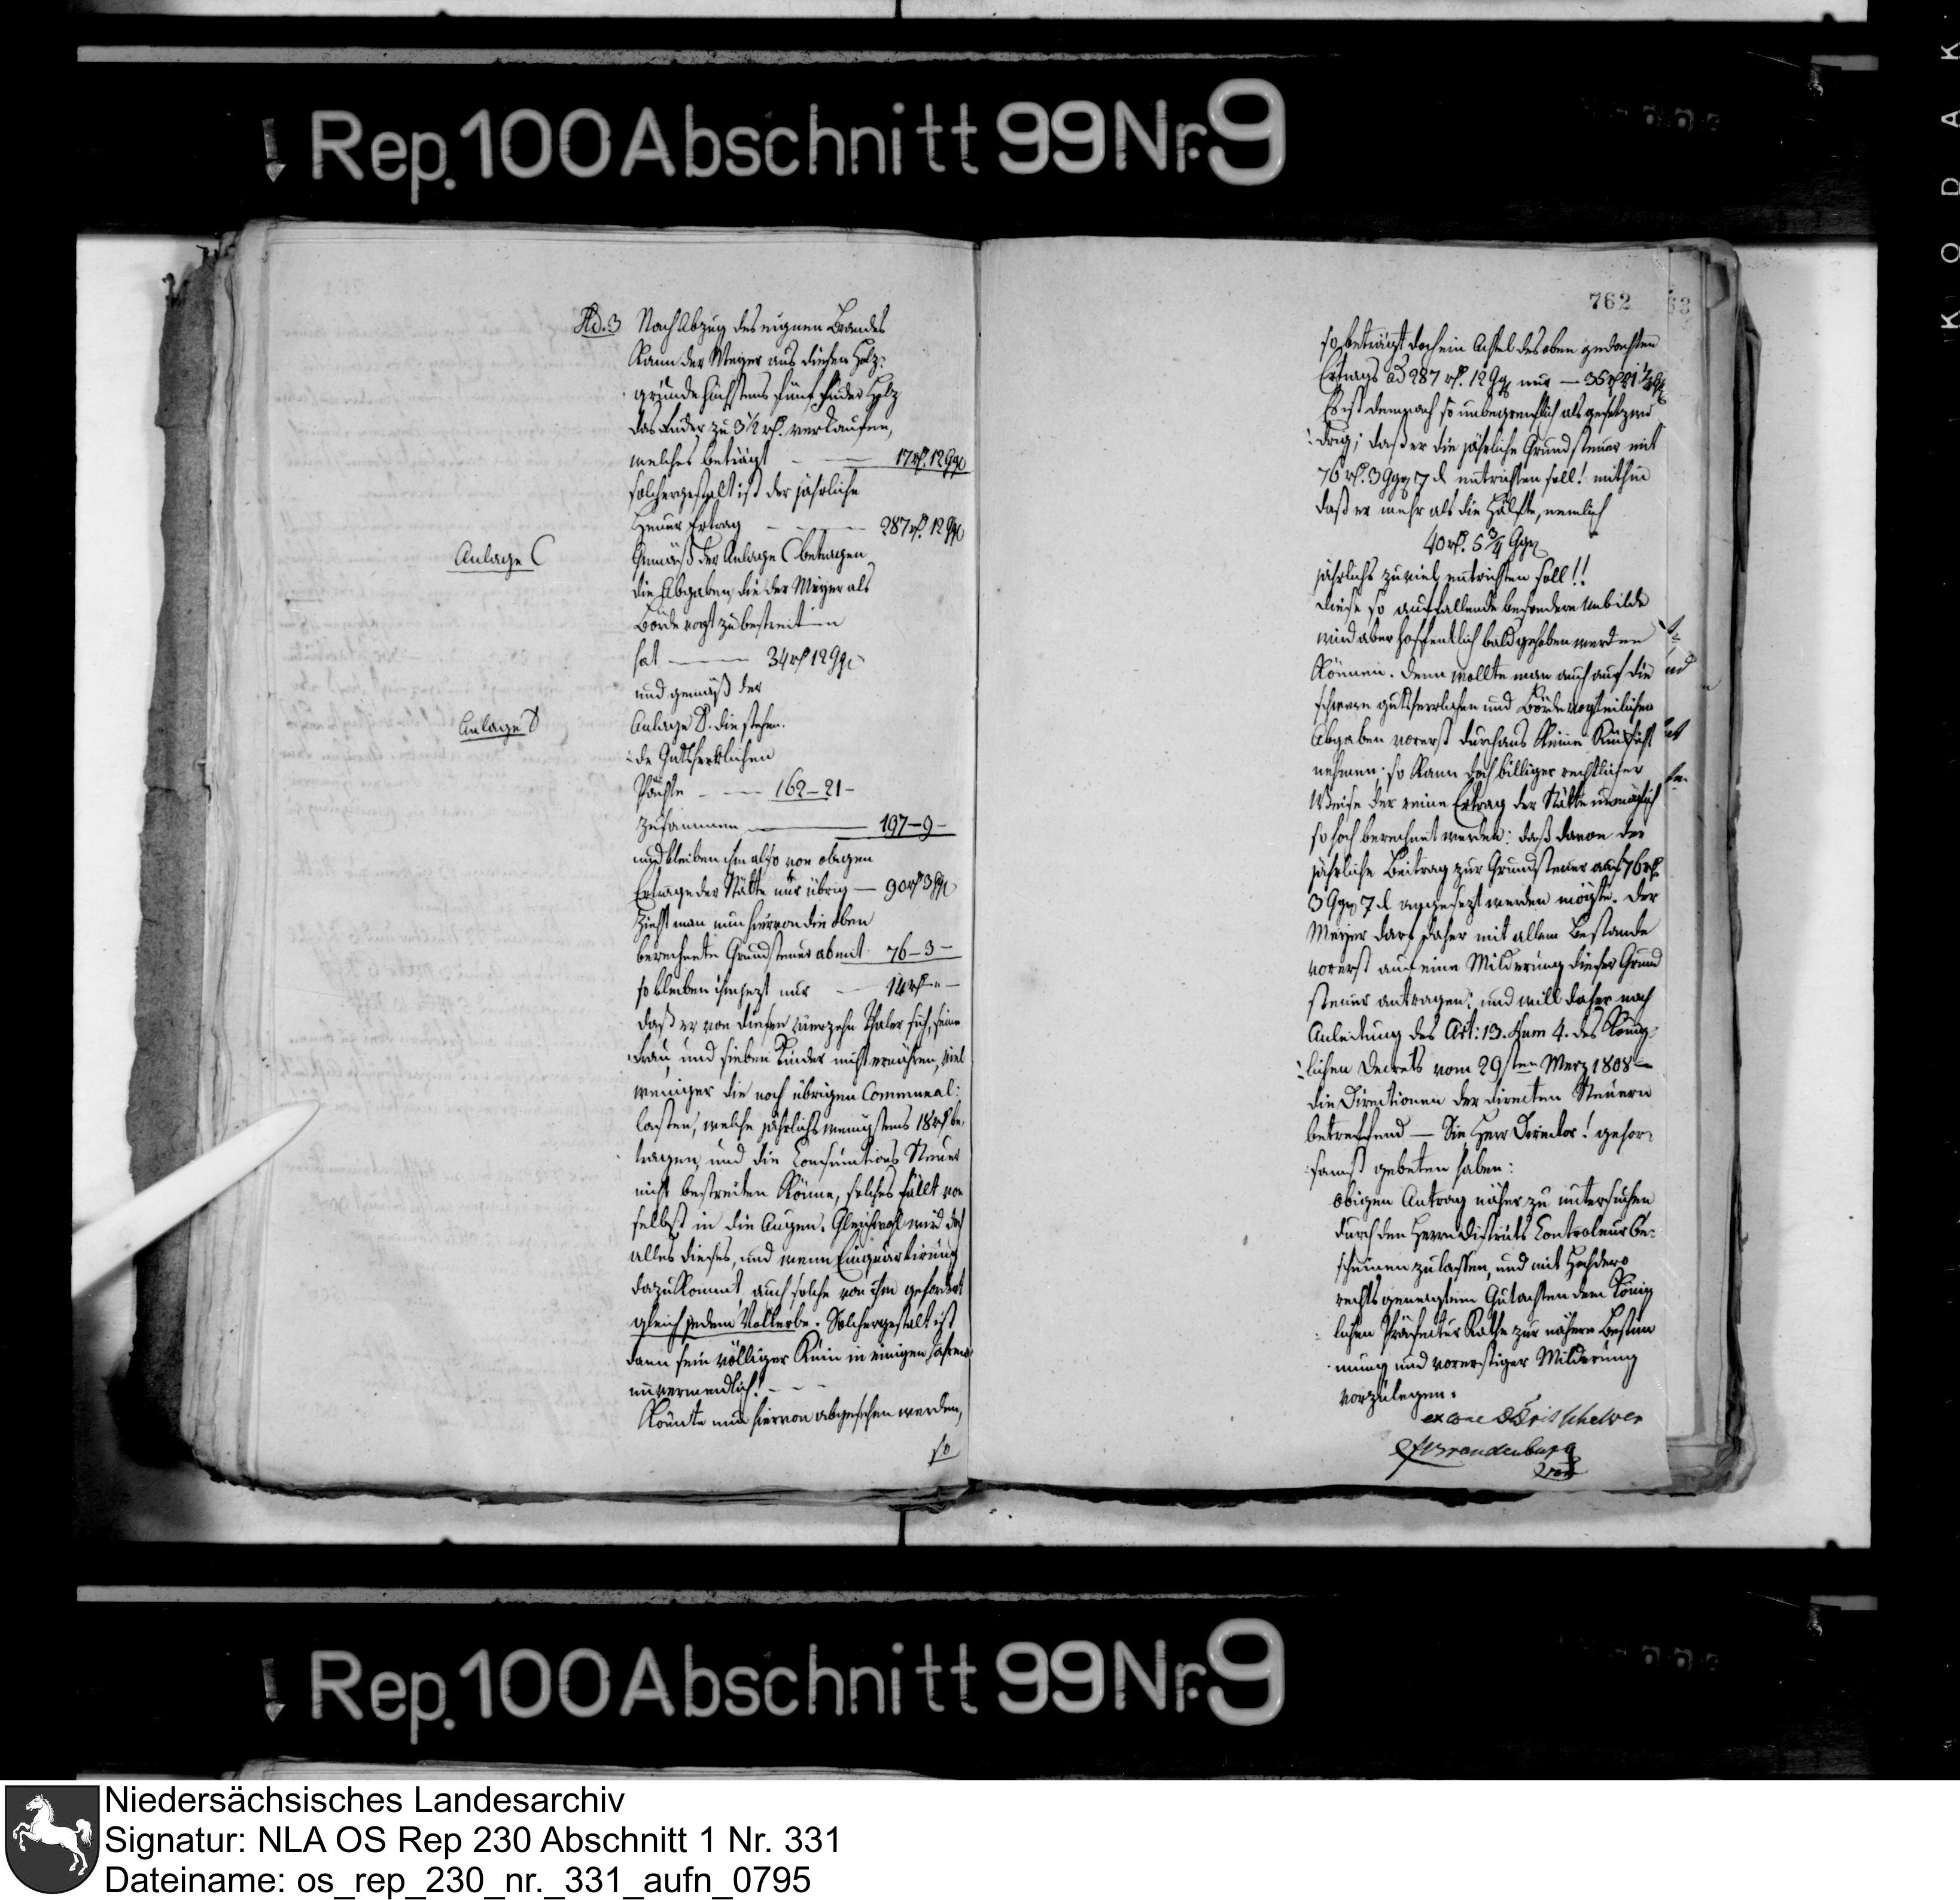 Rep. 100 Abschnitt 99 Nr. 9
Ad. 3 Nach Abzug des eignen Brandes
kann der Meyer aus diesen Holz-
gründe höchstens fünf Fuder Holz
das Fuder zu 3 1/2 rt. verkaufen,
welches beträgt — 17 rt. 12 Ggr
solchergestalt ist der jährliche
Heuer Ertrag — 287 rt. 12 ggr
Anlage C
Gemäß der Anlage C betragen
die Abgaben, die der Meyer als
Bördevogt zu bestreiten
hat — 34 rt 12 Ggr
und gemäß der
Anlage D
Anlage D. die stehen-
:de Gutsherrlichen
Pächte — 162 — 21 —
zusammen — 197 — 9 —
und bleiben ihm also von obigen
Ertrage der Stätte nur übrig — 90 rt 3 ggr
Zieht man nun hiervon die oben
berechnete Grundsteuer ab mit 76 — 3 —
so bleiben ihm jezt nur — 14 rt — " —
daß er von diesen vierzehn Thaler sich, seine
Frau, und sieben Kinder nicht ernähren, viel
weniger die noch übrigen Communal:
lasten, welche jährlichs wenigstens 18 rt be-
tragen, und die Consumtions Steuer
nicht bestreiten könne, solches fällt von
selbst in die Augen. Gleichwohl wird doch
alles dieses, und wenn Einquartirung
dazu kommt, auch solche von ihm gefordert
gleich jedem Vollerbe. Solchergestalt ist
dann sein völliger Ruin in einigen Jahren
unvermeidlich! — —
Könnte nun hiervon abgesehen werden,
so
762
63
so beträgt doch ein Achtel des oben gedachten
Ertrags ad 287 rt. 12 Ggr nur — 35 rt 21 1/2 ggr
Es ist demnach so unbegreiflich als gesetzwi
:drig; daß er die jährliche Grundsteuer mit
76 rt. 3 Ggr 7 d entrichten soll! mithin
daß er mehr als die Hälfte, nemlich
40 rt. 5 3/4 Ggr
jährlichs zuviel entrichten soll!!
Diese so auffallende besondere Unbilde
wird aber hoffentlich bald gehoben werden
können. Denn wollte man auch auf die
schweren gutsherrlichen und Bördevogteilichen
Abgaben vorerst durchaus keine Rücksicht
nehmen; so kann doch billiger rechtlicher
Weise der reine Ertrag der Stätte unmöglich
so hoch berechnet werden: daß davon der
jährliche Beitrag zur Grundsteuer auf 76 rt.
3 Ggr 7 d angesezt werden mögte. Der
Meyer darf daher mit allem Bestande
vorerst auf eine Milderung dieser Grund
steuer antragen; und will daher nach
Anleitung des Art: 13. Num 4. des König-
:lichen Decrets vom 29sten Merz 1808 —
die Directionen der directen Steuern
betreffend — Sie Herr Director! gehor-
:samst gebeten haben:
obigen Antrag näher zu untersuchen
durch den Herrn Districts Controleur be-
scheinen zu lassen, und mit Hochdero
rechts geneigtem Gutachten dem König
:lichen Präfectur Rathe zur nähern Bestim
mung und vorerstiger Milderung
vorzulegen.
Brandenburg
Rep. 100 Abschnitt 99 Nr. 9
Niedersächsisches Landesarchiv
Signatur: NLA OS Rep 230 Abschnitt 1 Nr. 331
Dateiname: os_rep_230_nr._331_aufn_0795
KODAK